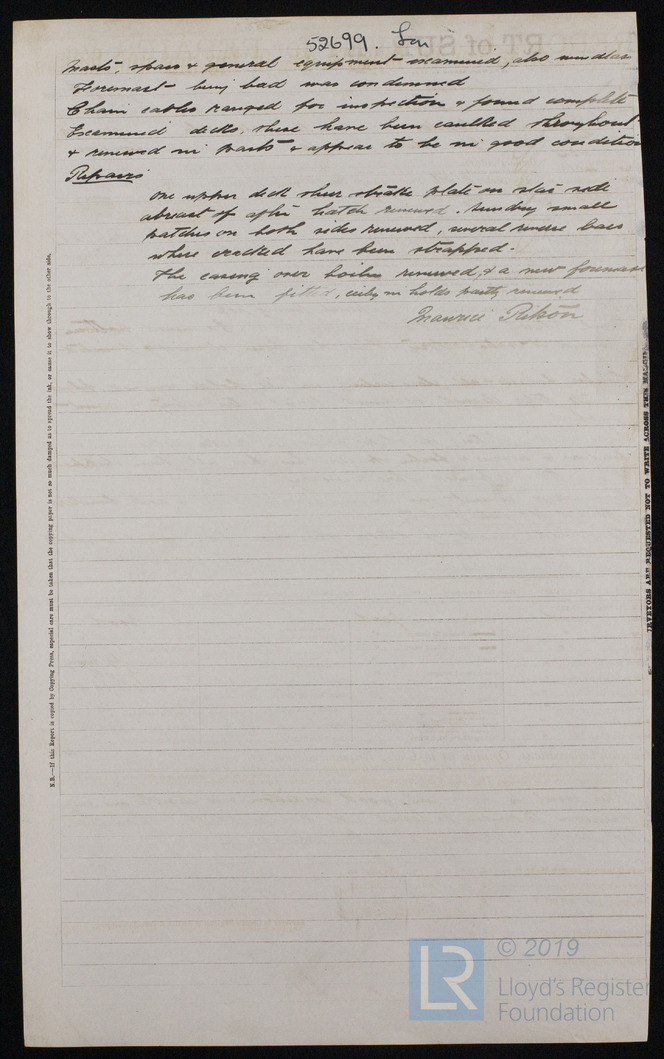 52699. Lon
Masts, spars & general equipment examined, also windlass
Foremast being bad was condemned
Chain cables ranged for inspection & found complete
Examined decks, these have been caulked throughout
& renewed in parts & appear to be in good condition
Repairs
One upper deck sheer strake plate on star side
abreast of after hatch renewed. Sundry small
patches on both sides renewed, several reverse bars
where cracked have been strapped.
The casing over boilers renewed, & a new foremast
has been fitted, ceiling in holds partly renewed
Maurice
N.B.—If this Report is copied by Copying Press, especial care must be taken that the copying paper is not so much damped as to spread the ink, or cause it to show through to the other side.
RVEYORS ARE REQUESTED NOT TO WRITE ACROSS THIS MARGIN
LR
© 2019
Lloyd's Register
Foundation